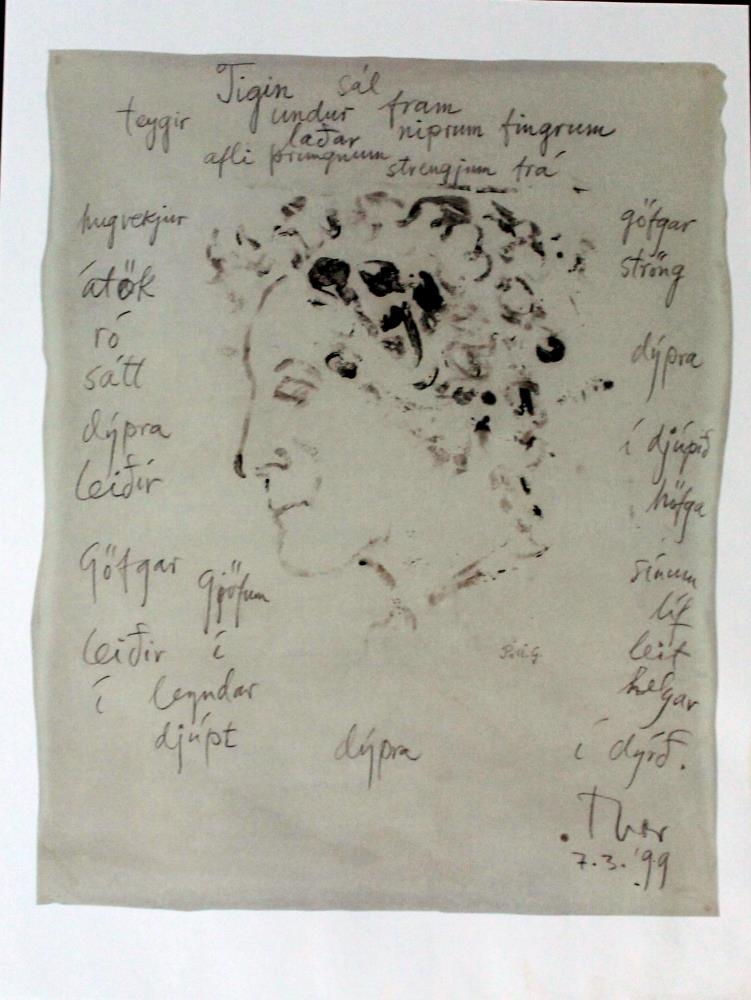 Tigin sál
teygir undur fram
laðar niprum fingrum
afli þrungnum strengjum frá
hugvekjur
átök
ró
sátt
dýpra
leiðir
Göfgar gjöfum
leiðir í
í leyndar
djúpt dýpra
göfgar
ströng
dýpra
í djúpið
höfga
sínum
líf
leit
helgar
í dýrð.
Thor
7.3.'99